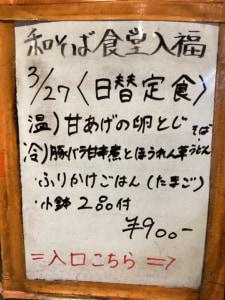 和そば食堂入福
3/27〈日替定食〉
温)甘あげの卵とじ
そば・
冷)豚バラ甘辛煮とほうれん草うどん
・ふりかけごはん(たまご)
・小鉢2品付
¥900-
⇒入口こちら⇒